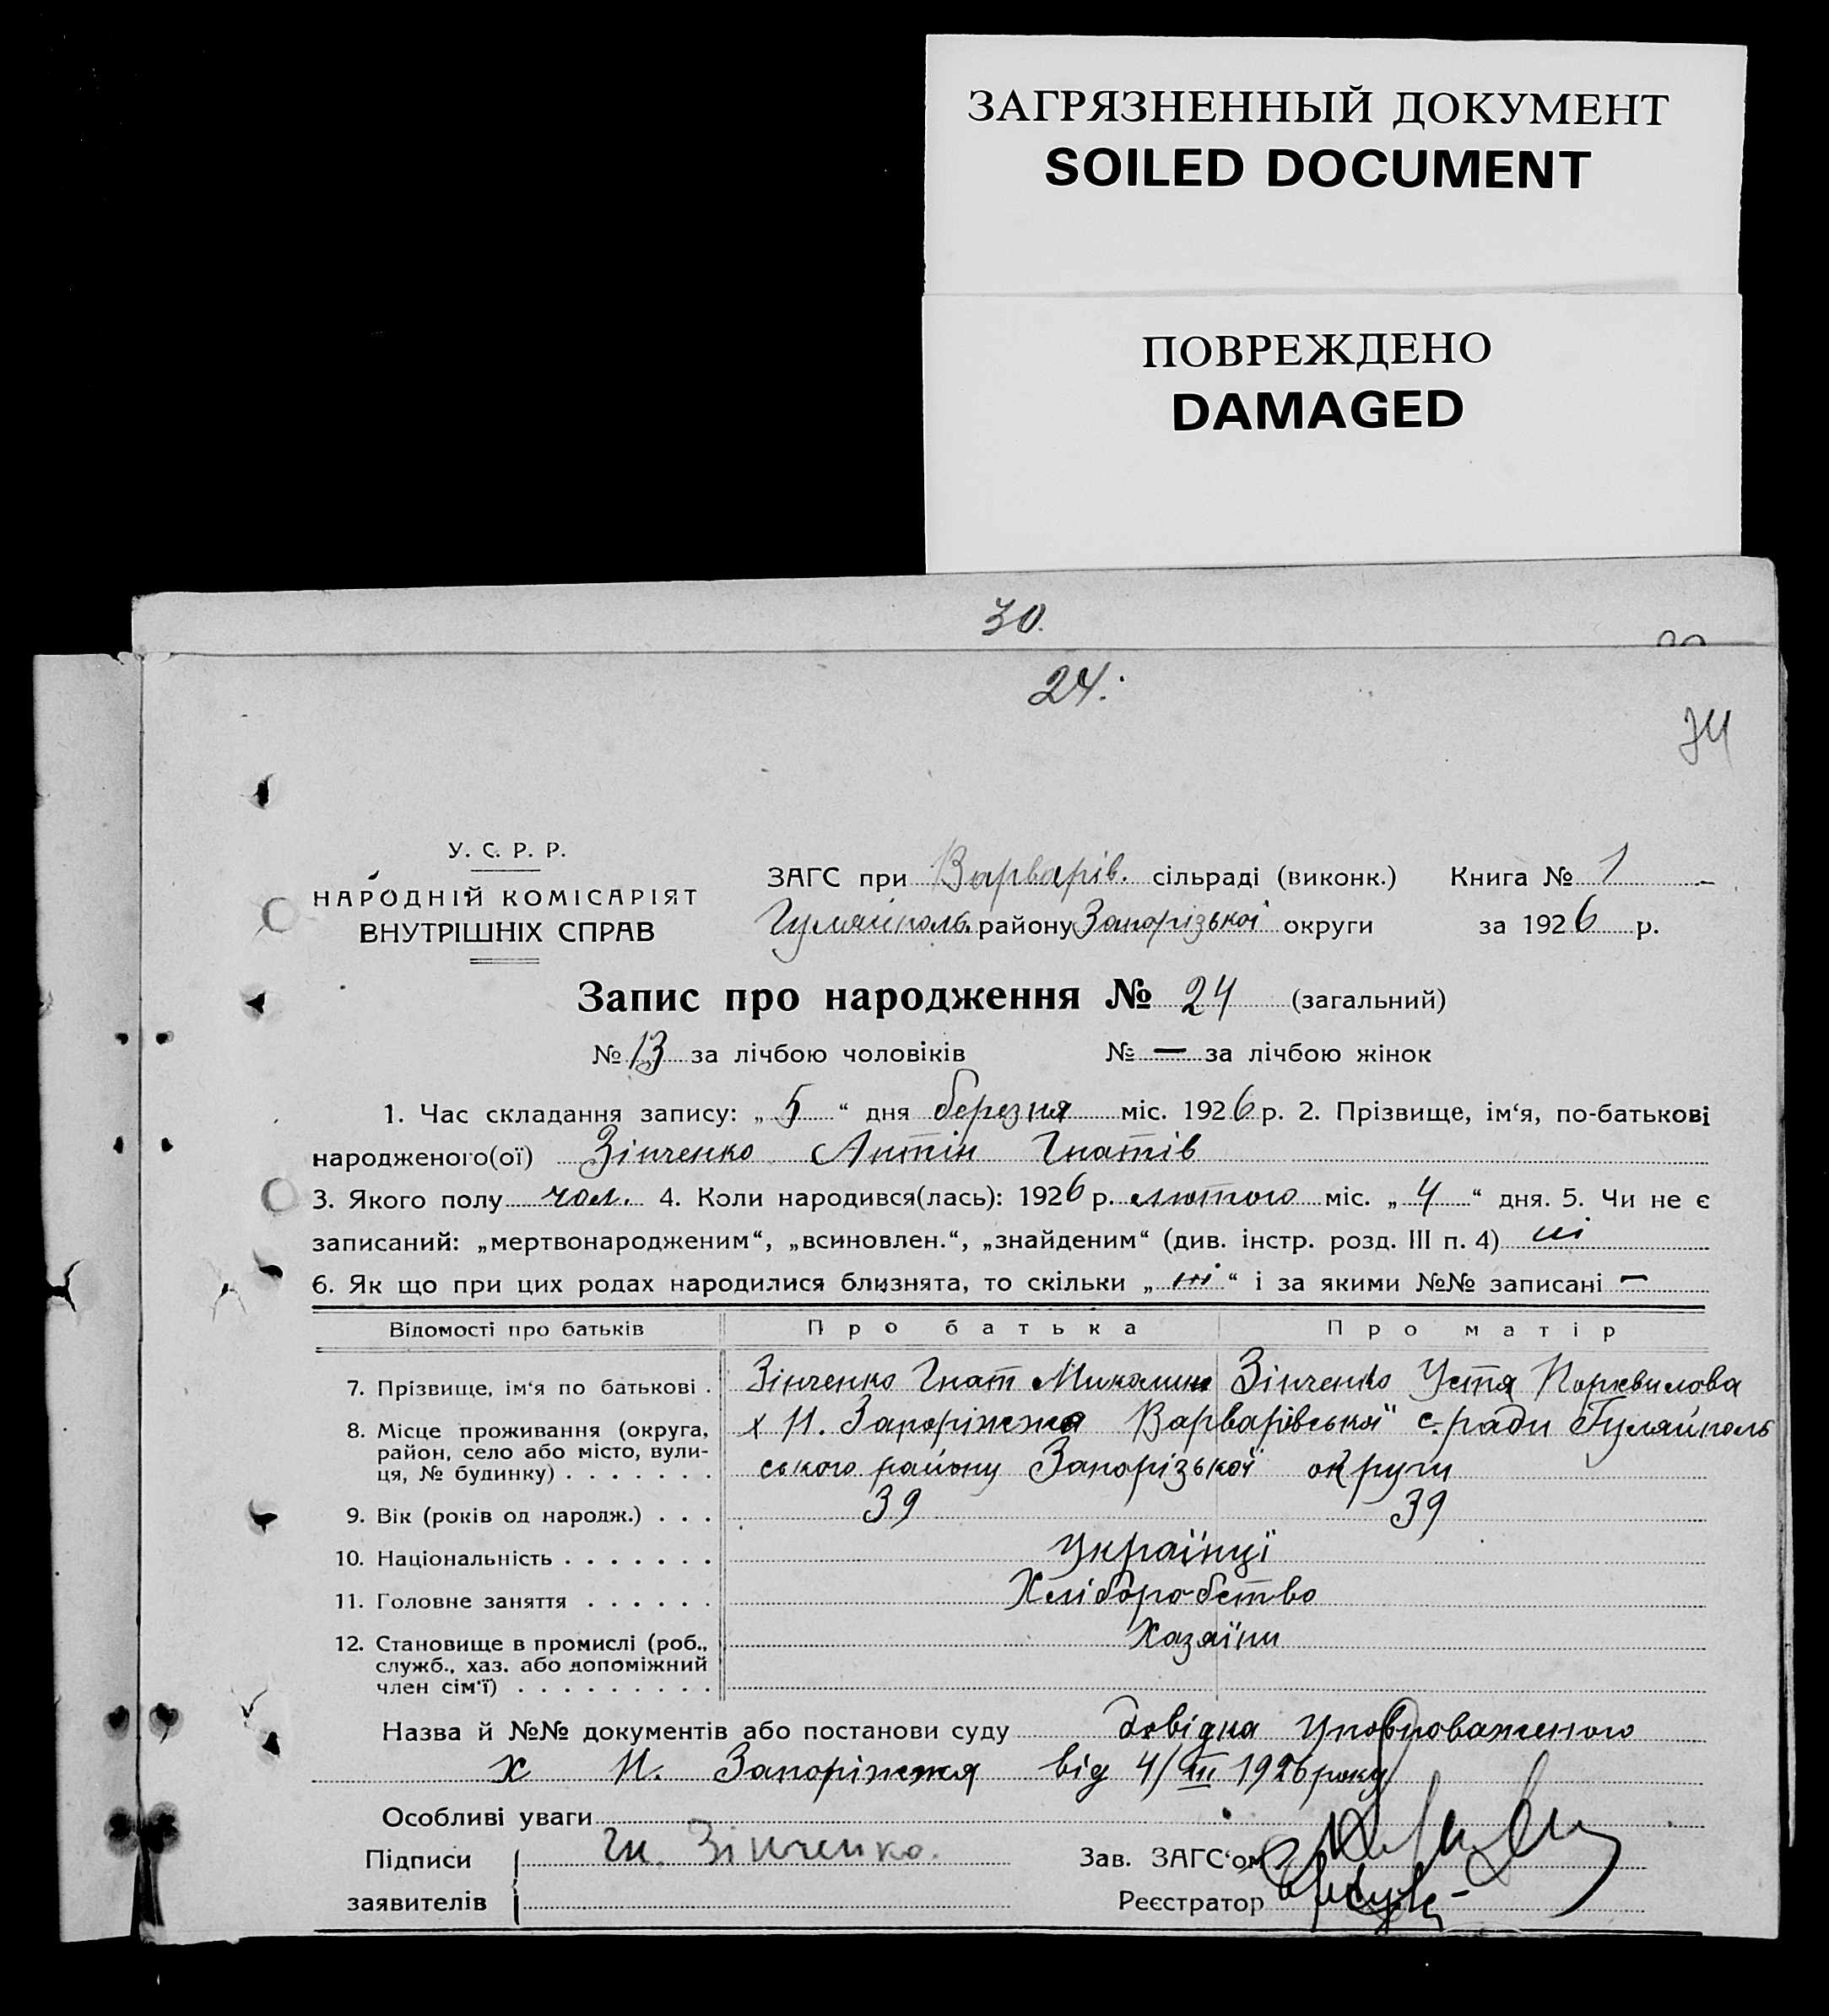 ЗАГРЯЗНЕННЫЙ ДОКУМЕНТ
SOILED DOCUMENT
ПОВРЕЖДЕНО
DAMAGED
30.
24.
У. С. Р. Р.
НАРОДНІЙ КОМІСАРІЯТ
ВНУТРІШНІХ СПРАВ
ЗАГС при Варварів. сільраді (виконк.) Книга № 1
Гуляйполь. району Запорізької округи за 1926 р.
Запис про народження № 24 (загальний)
№ 13 за лічбою чоловіків № — за лічбою жінок
1. Час складання запису: „ 5 “ дня березня міс. 1926 р. 2. Прізвище, ім‘я, по-батькові
народженого(ої) Зінченко Антін Гнатів
3. Якого полу чол. 4. Коли народився(лась): 1926 р. лютого міс. „ 4 “ дня. 5. Чи не є
записаний: „мертвонародженим“, „всиновлен.“, „знайденим“ (див. інстр. розд. III п. 4) ні
6. Як що при цих родах народилися близнята, то скільки „ ні “ і за якими №№ записані —
Відомості про батьків Про батька Про матір
7. Прізвище, ім‘я по батькові . Зінченко Гнат Зінченко Устя
8. Місце проживання (округа, район, село або місто, вулиця, № будинку) . . . . . . . х Н. Запоріжжя Варварівської с.ради Гуляйполь
ського району Запорізької округи
9. Вік (років од народж.) . . . 39 39
10. Національність . . . . . . . Українці
11. Головне заняття . . . . . . Хліборобство
12. Становище в промислі (роб., служб., хаз. або допоміжний член сім‘ї) . . . . . . . . . Хазяїни
Назва й №№ документів або постанови суду довідка уповноваженого
х Н. Запоріжжя від 4/III 1926 року
Особливі уваги
Підписи Гн. Зінченко. Зав. ЗАГС‘ом
заявителів Реєстратор